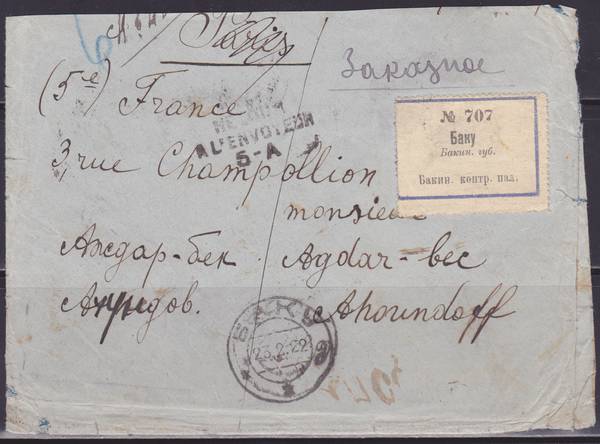 Paris
Заказное
(5e) France
RETOUR
A L'ENVOYEUR
5-A
№ 707
Баку
Бакин. губ.
Бакин. контр. пал.
3, rue Champollion
monsieur
Аждар-бек Agdar-bec
Ахундов. Ahoundoff
БАКУ
23.2.22